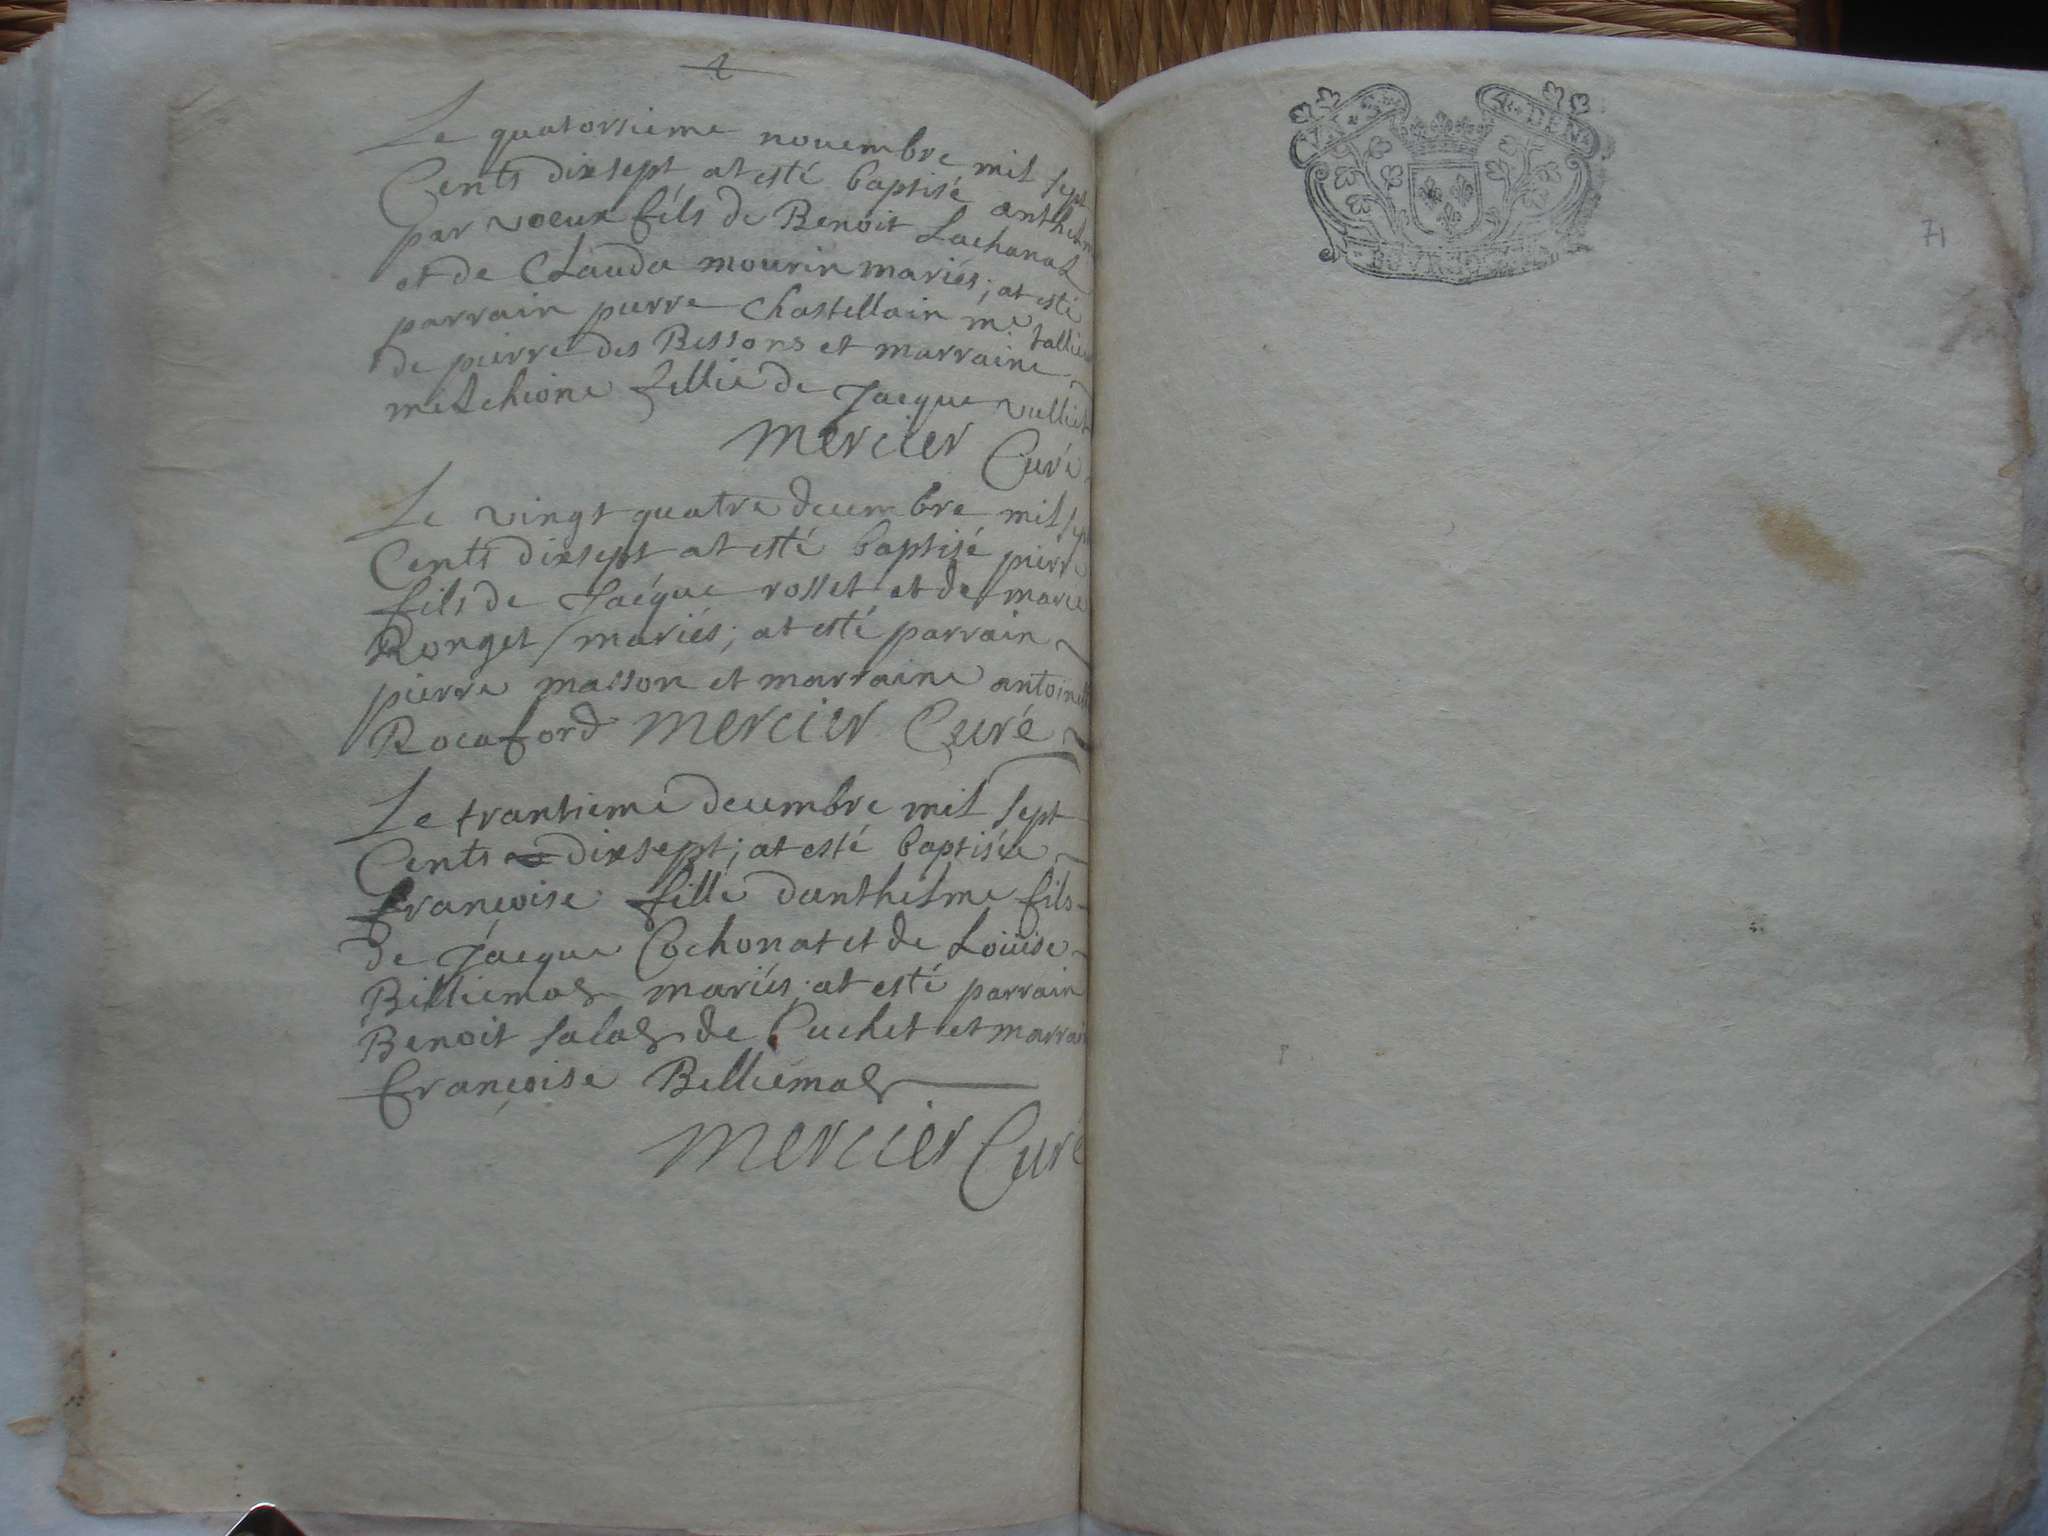 Le quatorsieme novembre mil sept
Cents dixsept at esté baptisé anthelme
par voeux fils de Benoit Lachanal
et de Clauda mourin mariés; at esté
parrain pierre Chastellain me tallieur
de pierre des Bessons et marraine
melchione fillie de Jacque vulliet
mercier Curé
Le vingt quatre decembre mil sept
Cents dixsept at esté baptisé pierre
fils de Jacque rosset et de marie
Ronget mariés; at esté parrain
pierre masson et marraine antoinette
Rocaford mercier Curé
Le trantieme decembre mil sept
Cents dixsept; at esté baptisée
françoise fille danthelme fils
de Jacque Cochonat et de Loüise
Billiemas mariés; at esté parrain
Benoit Salas de Cuchet et marraine
françoise Billiemas
mercier Curé
4 DEN
71